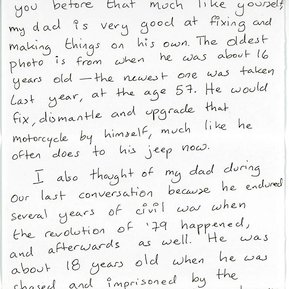 you before that much like yourself
my dad is very good at fixing and
making things on his own. The oldest
photo is from when he was about 16
years old — the newest one was taken
last year, at the age 57. He would
fix, dismantle and upgrade that
motorcycle by himself, much like he
often does to his jeep now.
I also thought of my dad during
our last conversation because he endured
several years of civil war when
the revolution of '79 happened,
and afterwards as well. He was
about 18 years old when he was
chased and imprisoned by the